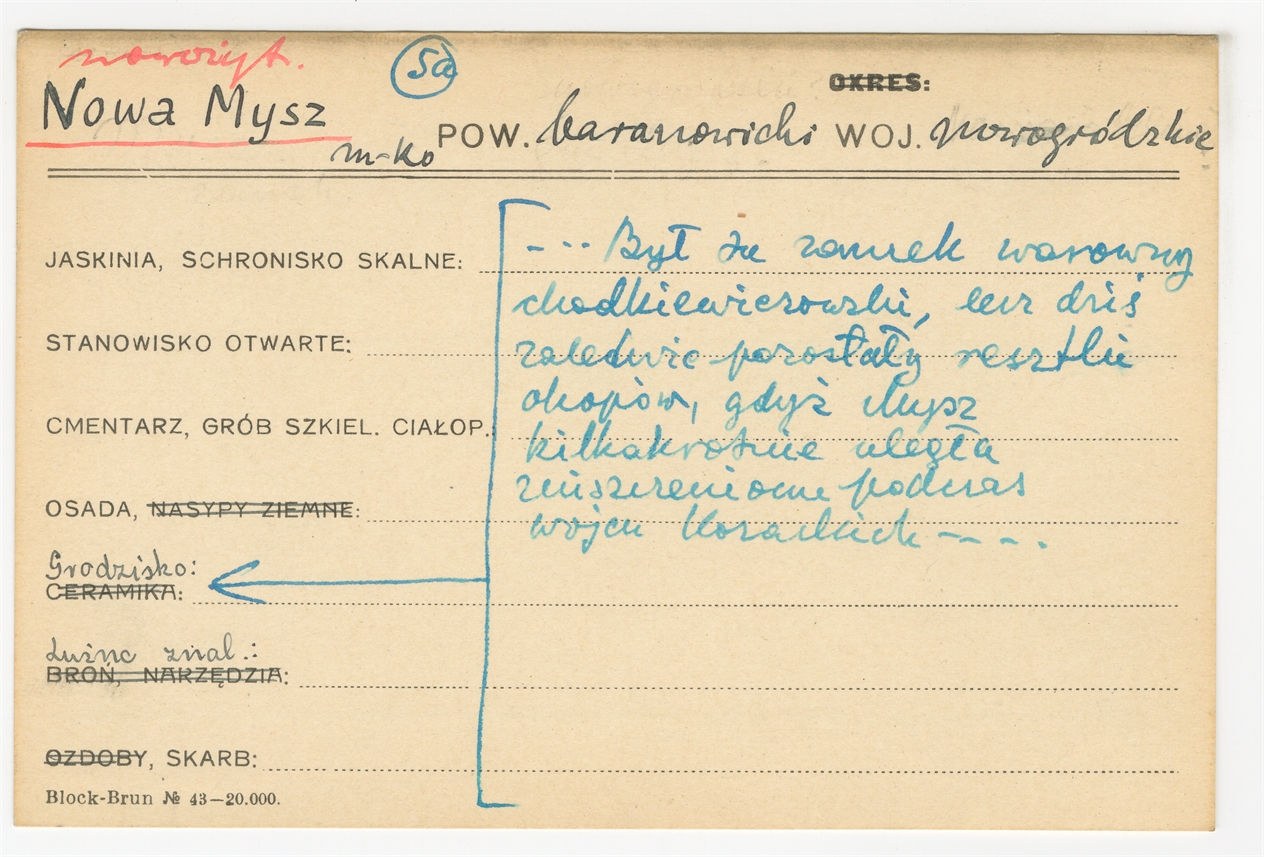 nowożyt.
5a
OKRES:
Nowa Mysz
m-ko POW. baranowicki WOJ. nowogródzkie
JASKINIA, SCHRONISKO SKALNE:
--·· Był tu zamek warowny
chodkiewiczowski, lecz dziś
STANOWISKO OTWARTE:
zaledwie pozostały resztki
okopów, gdyż Mysz
CMENTARZ, GRÓB SZKIEL. CIAŁOP.:
kilkakrotnie uległa
zniszczeniom podczas
OSADA, NASYPY ZIEMNE:
wojen Kozackich ----.
Grodzisko:
CERAMIKA:
Luźne znal.:
BROŃ, NARZĘDZIA:
OZDOBY, SKARB:
Block-Brun № 43—20.000.